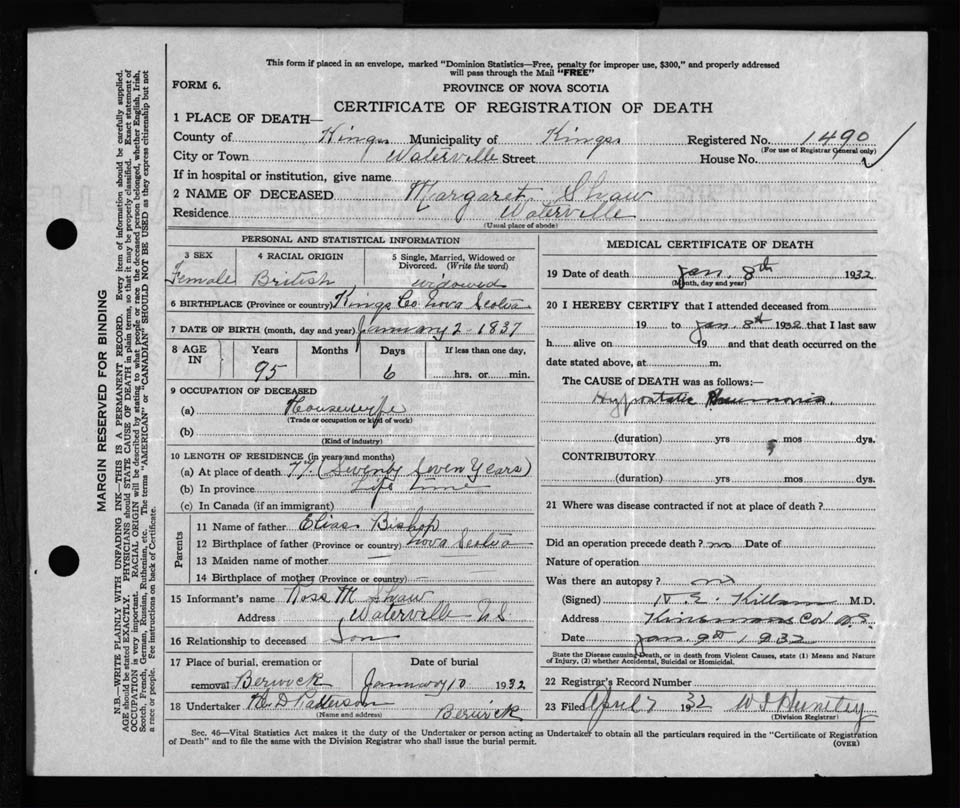 This form if placed in an envelope, marked "Dominion Statistics—Free, penalty for improper use, $300," and properly addressed
will pass through the Mail "FREE"
FORM 6.
PROVINCE OF NOVA SCOTIA
CERTIFICATE OF REGISTRATION OF DEATH
1 PLACE OF DEATH—
County of Kings Municipality of Kings Registered No. 1490
(For use of Registrar General only)
City or Town Waterville Street House No.
If in hospital or institution, give name
2 NAME OF DECEASED Margaret Shaw
Residence Waterville
(Usual place of abode)
PERSONAL AND STATISTICAL INFORMATION
3 SEX 4 RACIAL ORIGIN 5 Single, Married, Widowed or
Divorced. (Write the word)
Female British widowed
6 BIRTHPLACE (Province or country) Kings Co Nova Scotia
7 DATE OF BIRTH (month, day and year) January 2 - 1837
8 AGE IN Years Months Days If less than one day,
95 6 hrs. or min.
9 OCCUPATION OF DECEASED
(a) Housewife
(Trade or occupation or kind of work)
(b)
(Kind of industry)
10 LENGTH OF RESIDENCE (in years and months)
(a) At place of death 77. (Seventy Seven Years)
(b) In province Life time
(c) In Canada (if an immigrant)
Parents
11 Name of father Elias Bishop
12 Birthplace of father (Province or country) Nova Scotia
13 Maiden name of mother —
14 Birthplace of mother (Province or country) —
15 Informant's name Ross M Shaw
Address Waterville N.S.
16 Relationship to deceased Son
17 Place of burial, cremation or Date of burial
removal Berwick January 10 1932
18 Undertaker Patterson
(Name and address) Berwick
MEDICAL CERTIFICATE OF DEATH
19 Date of death Jan. 8th 1932
(Month, day and year)
20 I HEREBY CERTIFY that I attended deceased from
19 to Jan. 8th 1932 that I last saw
h alive on 19 and that death occurred on the
date stated above, at m.
The CAUSE of DEATH was as follows:—
Hypostatic Pneumonia
(duration) yrs mos dys.
CONTRIBUTORY
(duration) yrs mos dys.
21 Where was disease contracted if not at place of death?
Did an operation precede death? no Date of
Nature of operation
Was there an autopsy? no
(Signed) Killam M.D.
Address
Date Jan. 9th 1932
State the Disease causing Death, or in death from Violent Causes, state (1) Means and Nature
of Injury, (2) whether Accidental, Suicidal or Homicidal.
22 Registrar's Record Number
23 Filed April 7 1932 Huntley
(Division Registrar)
Sec. 46—Vital Statistics Act makes it the duty of the Undertaker or person acting as Undertaker to obtain all the particulars required in the "Certificate of Registration
of Death" and to file the same with the Division Registrar who shall issue the burial permit.
(OVER)
MARGIN RESERVED FOR BINDING
N.B.—WRITE PLAINLY WITH UNFADING INK—THIS IS A PERMANENT RECORD. Every item of information should be carefully supplied.
AGE should be stated EXACTLY. PHYSICIANS should STATE CAUSE OF DEATH in plain terms, so that it may be properly classified. Exact statement of
OCCUPATION is very important. RACIAL ORIGIN will be described by stating to what people or race the deceased person belonged, whether English, Irish,
Scotch, French, German, Russian, Ruthenian, etc. The terms "AMERICAN" or "CANADIAN" SHOULD NOT BE USED as they express citizenship but not
a race or people. See instructions on back of Certificate.